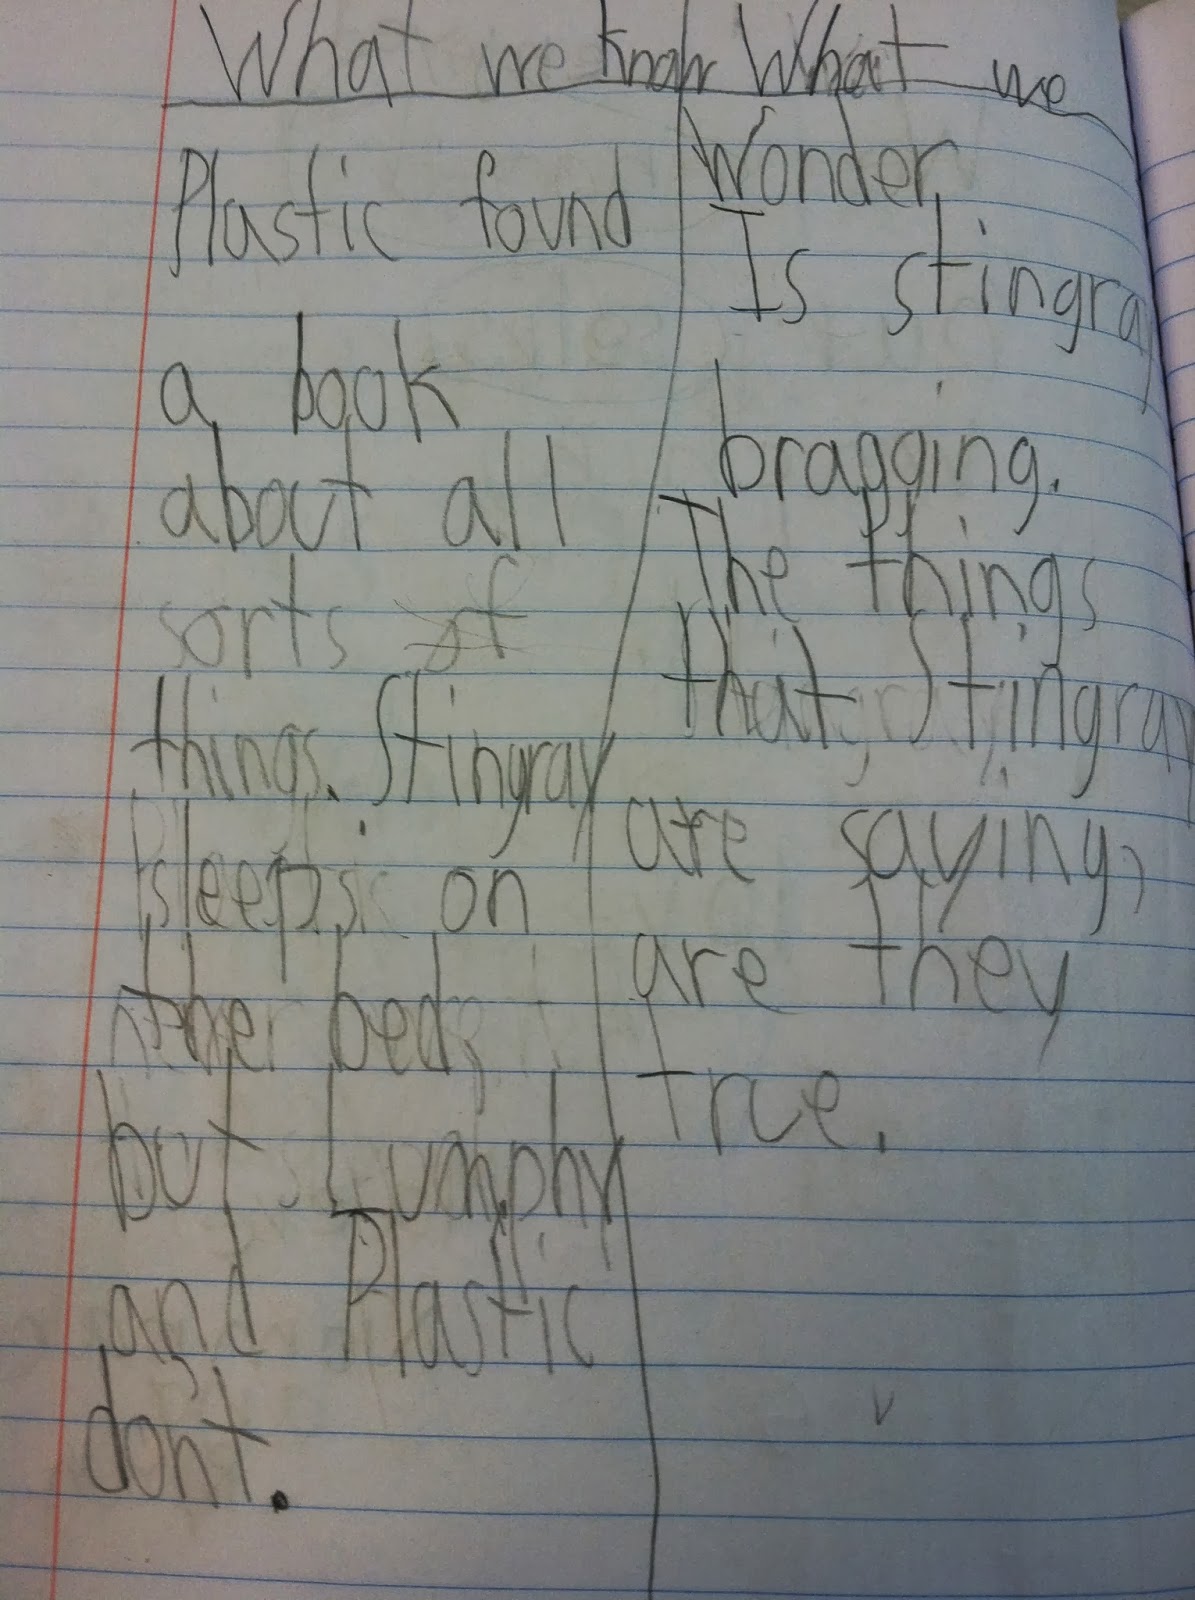 What we know
Plastic found
a book
about all
sorts of
things. Stingray
sleeps on
the bed
but Lumphy
and Plastic
don't.
What we
Wonder
Is stingray
bragging.
The things
that Stingray
are saying,
are they
true.